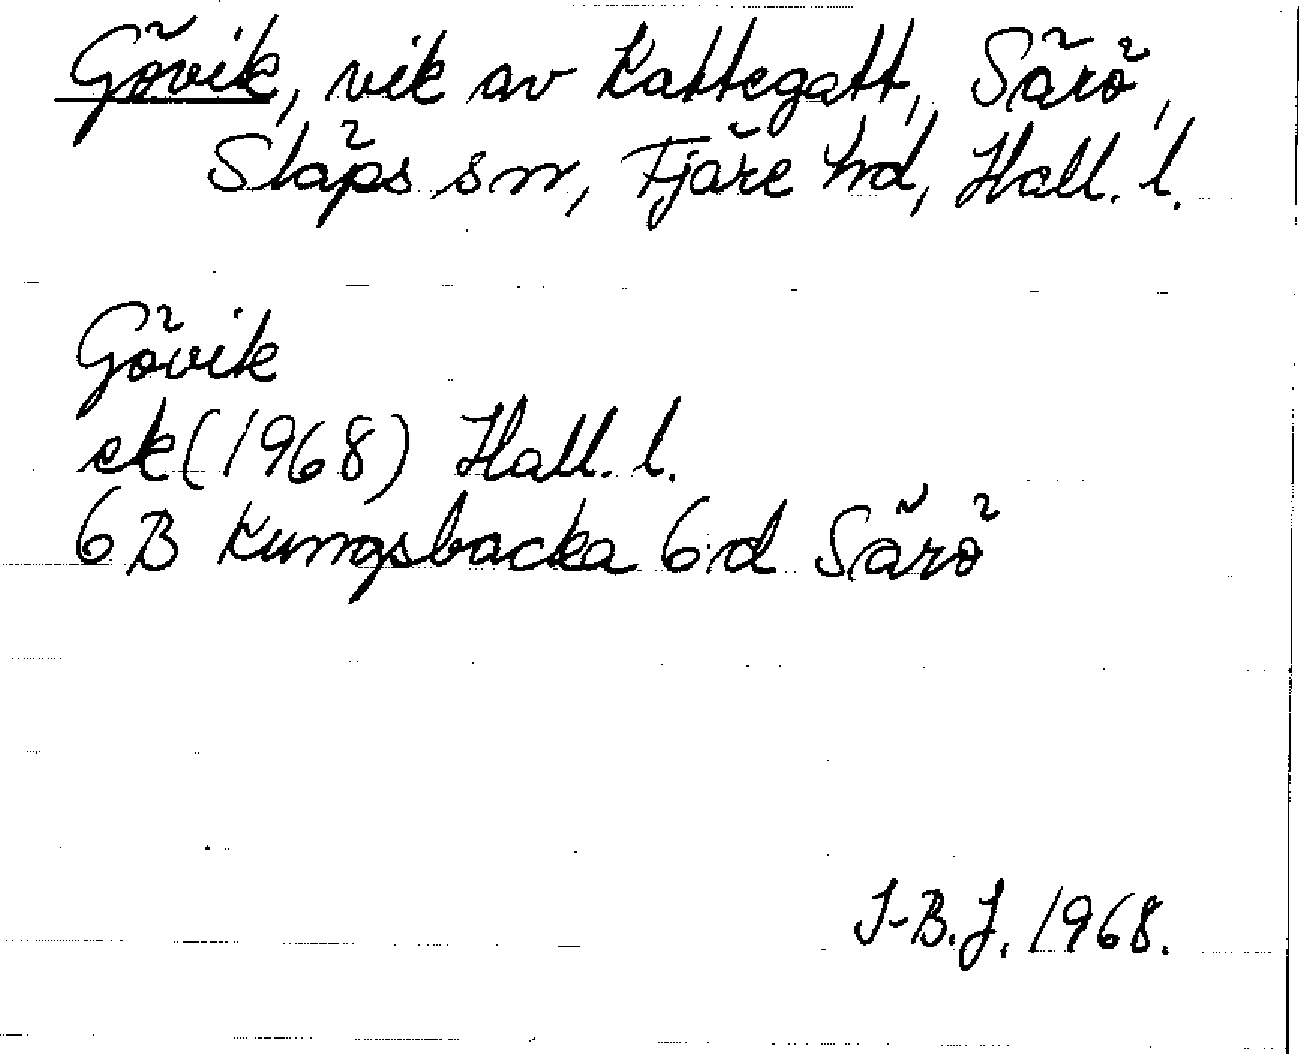 Gövik, vik av Kattegatt, Särö,
Släps sn, Fjäre hd, Hall. l.
Gövik
ek (1968) Hall. l.
6B Kungsbacka 6d Särö
I-B.J. 1968.